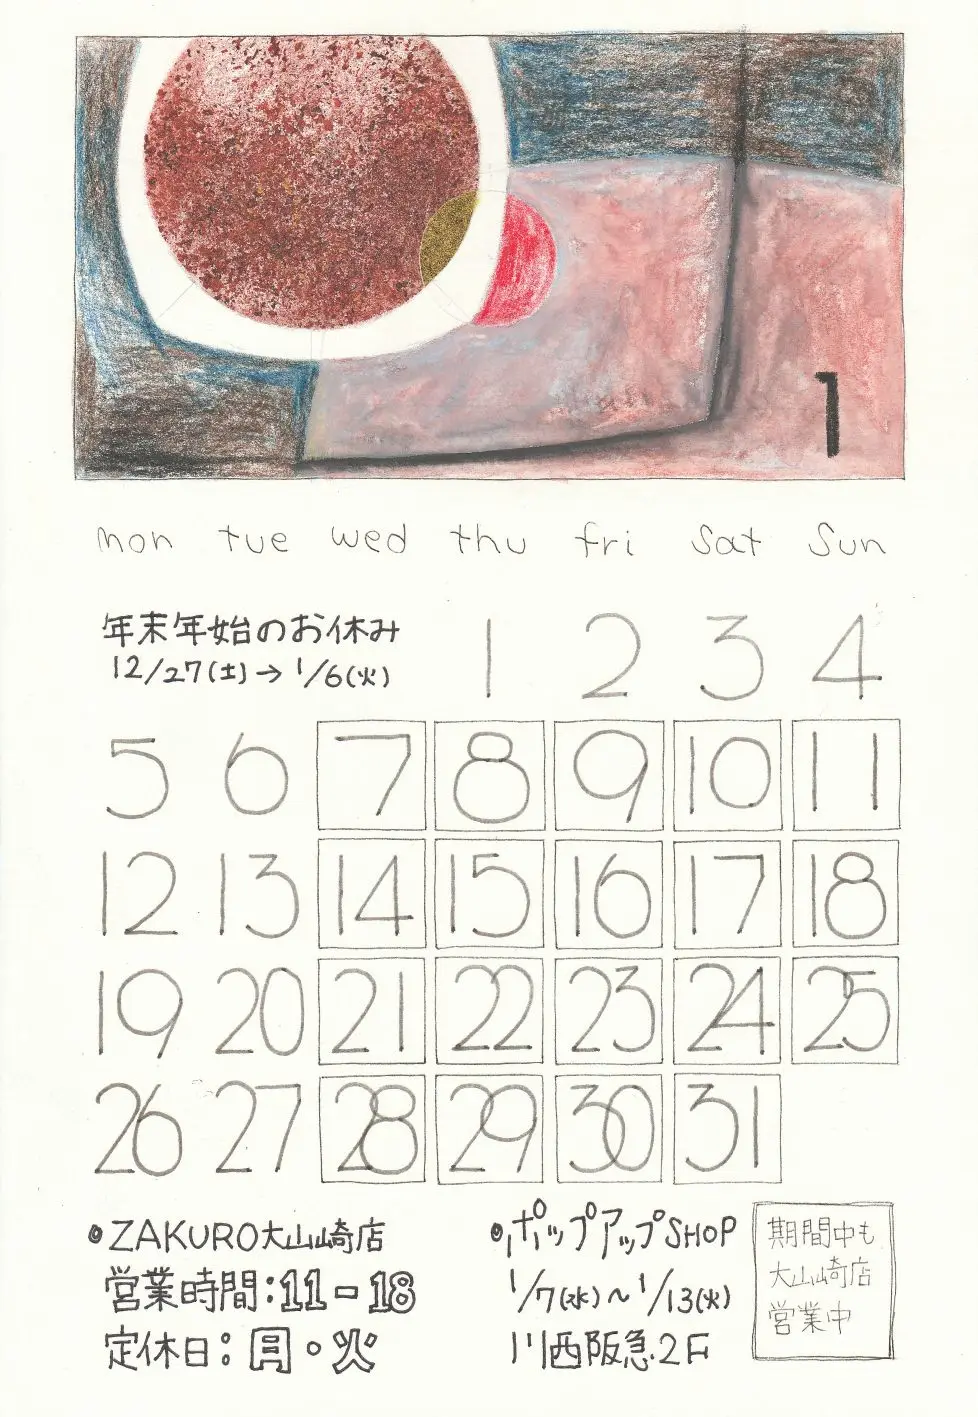 1
mon tue wed thu fri sat sun
年末年始のお休み
12/27(土)→1/6(火)
1 2 3 4
5 6 7 8 9 10 11
12 13 14 15 16 17 18
19 20 21 22 23 24 25
26 27 28 29 30 31
●ZAKURO大山崎店
営業時間:11-18
定休日:月・火
●ポップアップSHOP
1/7(水)~1/13(火)
川西阪急2F
期間中も
大山崎店
営業中